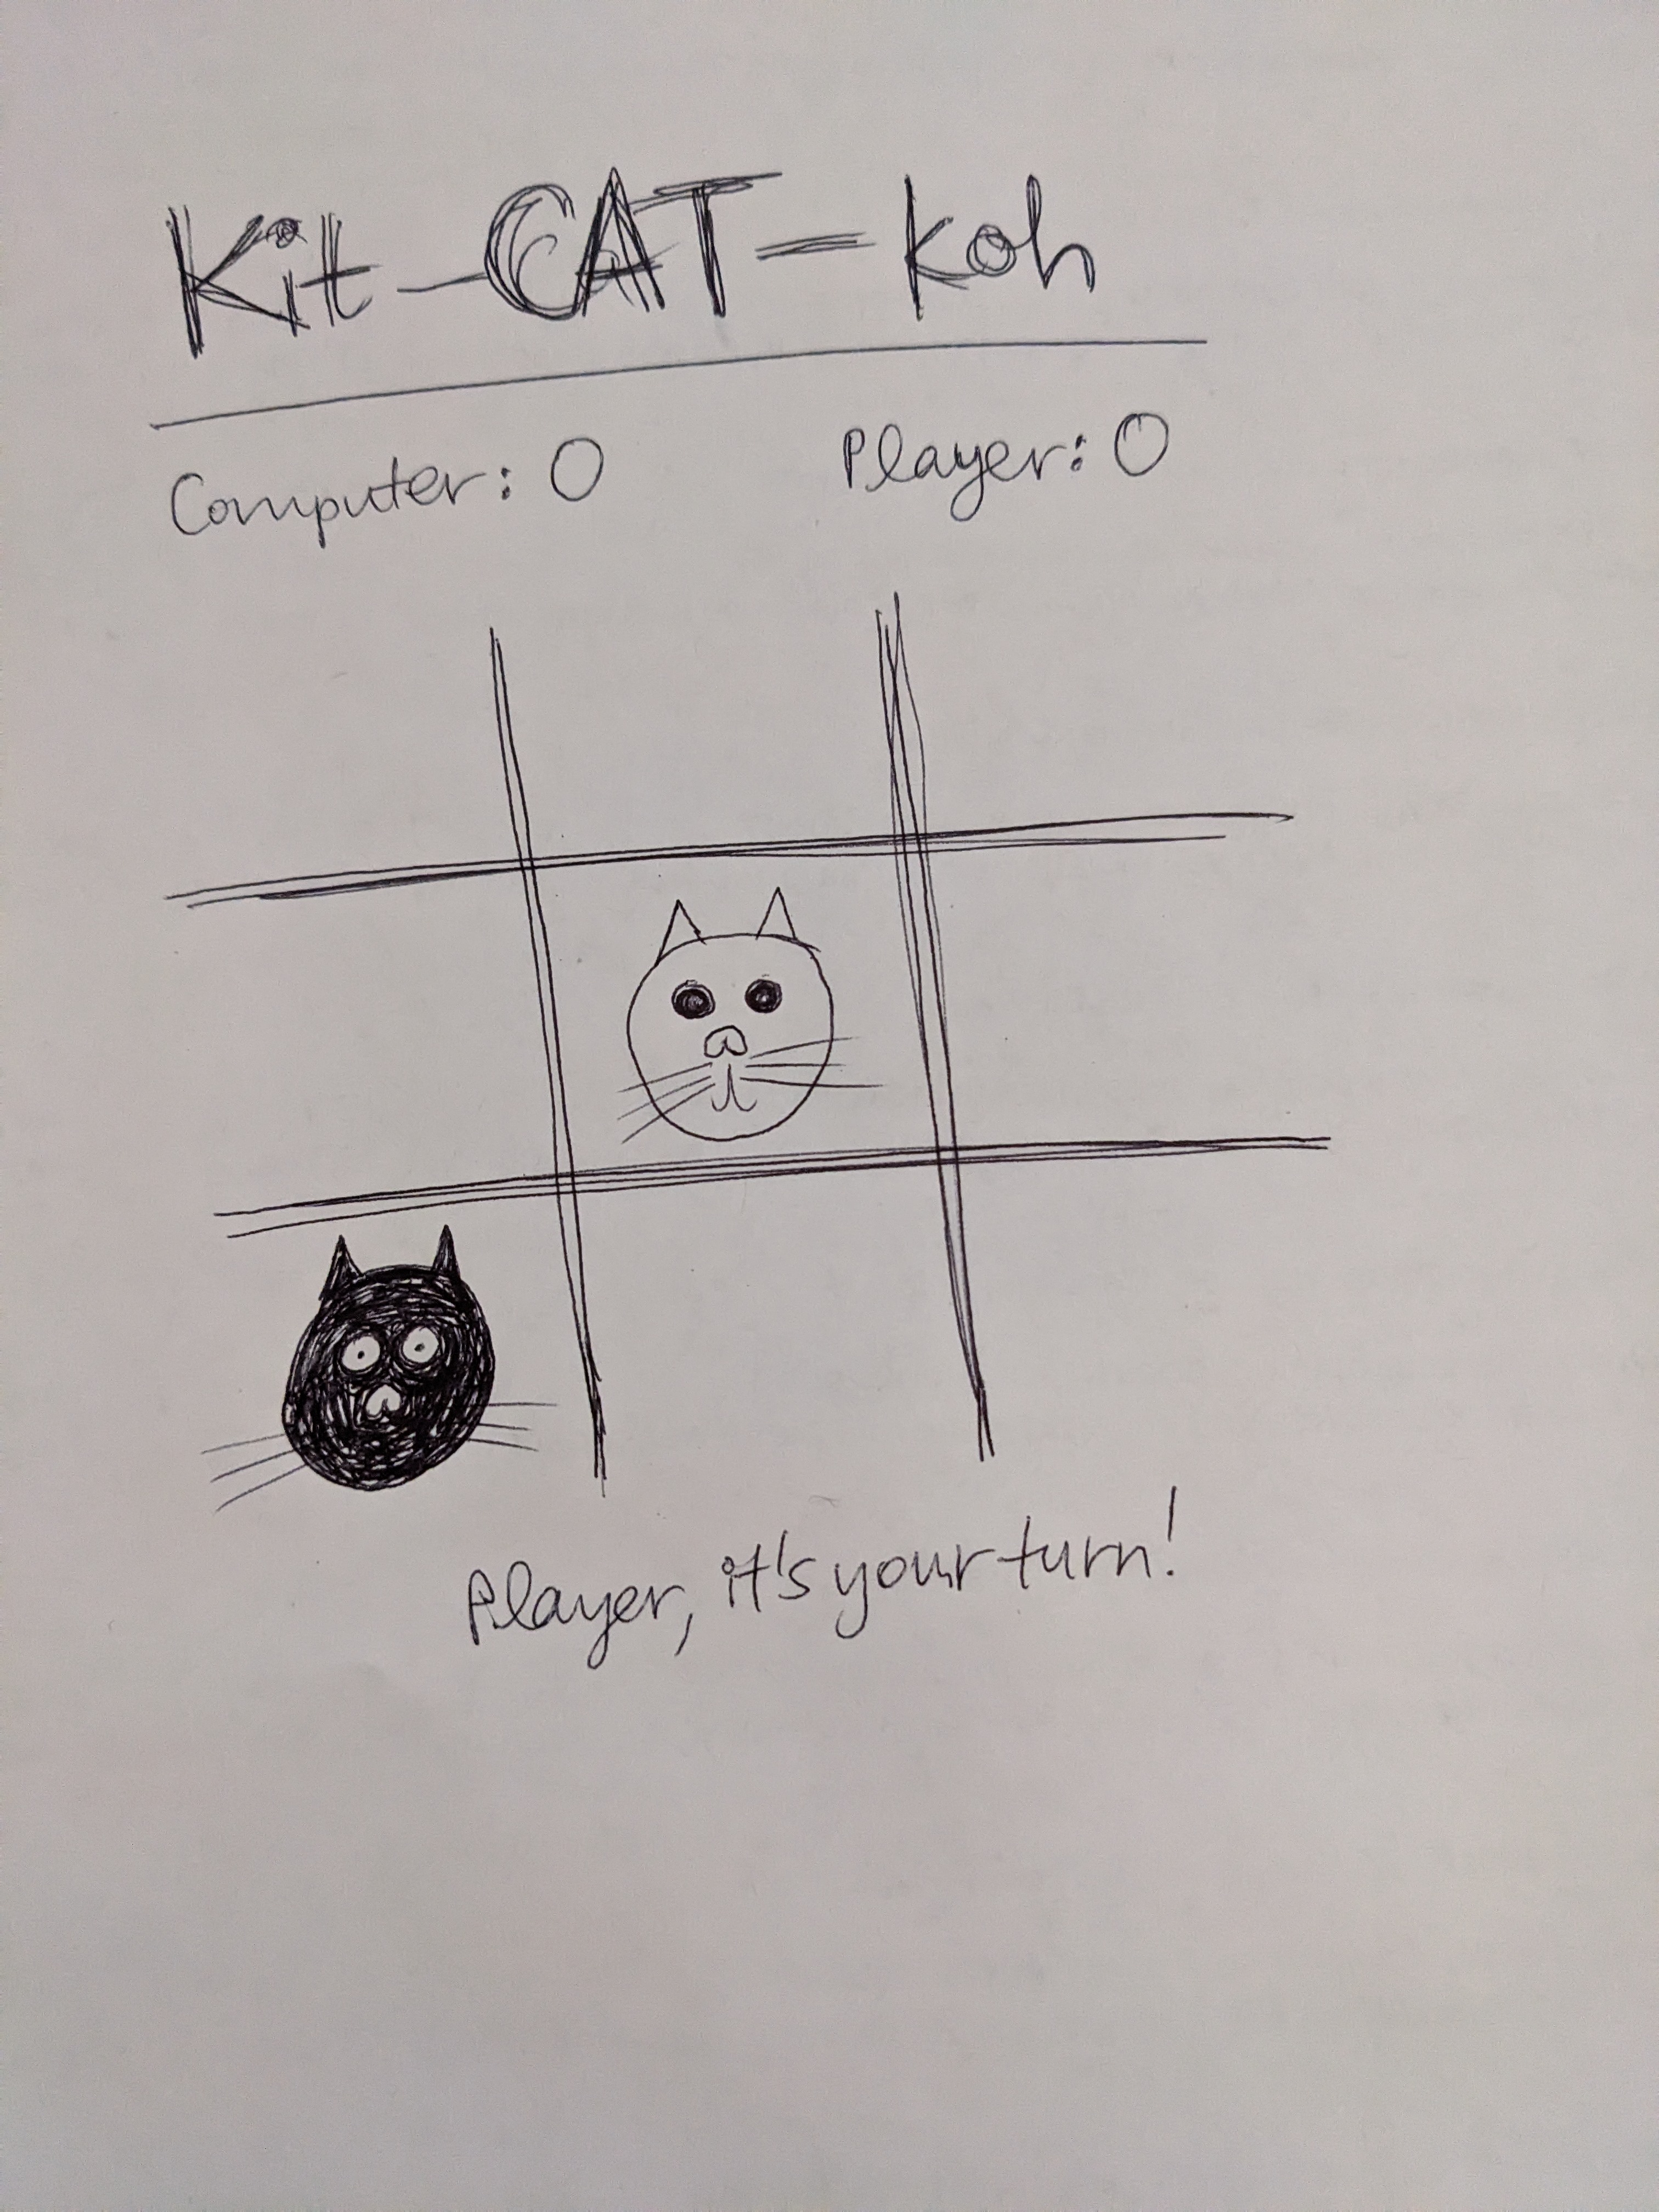 Kit-CAT-koh
Computer: 0 Player: 0
Player, it's your turn!